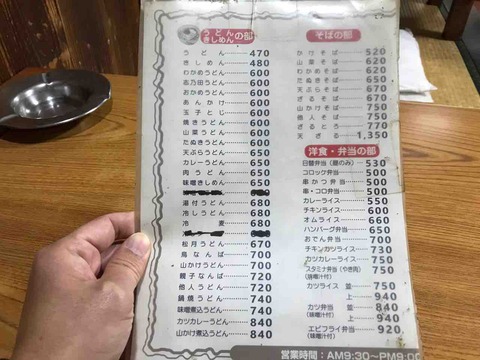 うどん
きしめん の部
うどん 470
きしめん 480
わかめうどん 600
志乃田うどん 600
おかめうどん 600
あんかけ 600
玉子とじ 600
焼きうどん 600
山菜うどん 600
たぬきうどん 600
天ぷらうどん 650
カレーうどん 650
肉うどん 650
味噌きしめん 650
湯付うどん 680
冷しうどん 680
冷麦 680
松月うどん 670
鳥なんば 700
山かけうどん 700
親子なんば 720
他人うどん 720
鍋焼うどん 740
味噌煮込うどん 740
カツカレーうどん 840
山かけ煮込うどん 840
そばの部
かけそば 520
山菜そば 620
わかめそば 620
たぬきそば 650
天ぷらそば 670
ざるそば 670
山かけそば 750
他人そば 750
ざるとう 770
天ざる 1,350
洋食・弁当の部
日替弁当(昼のみ) 530
コロッケ弁当 500
串かつ弁当 500
串・コロ弁当 500
カレーライス 550
チキンライス 600
オムライス 660
ハンバーグ弁当 650
おでん弁当 730
チキンカツライス 730
カツカレーライス 750
スタミナ弁当(やき肉) 750
(味噌汁付)
カツライス 並 750
上 940
カツ弁当 並 840
(味噌汁付) 上 940
エビフライ弁当 920
(味噌汁付)
営業時間:AM9:30~PM9:00